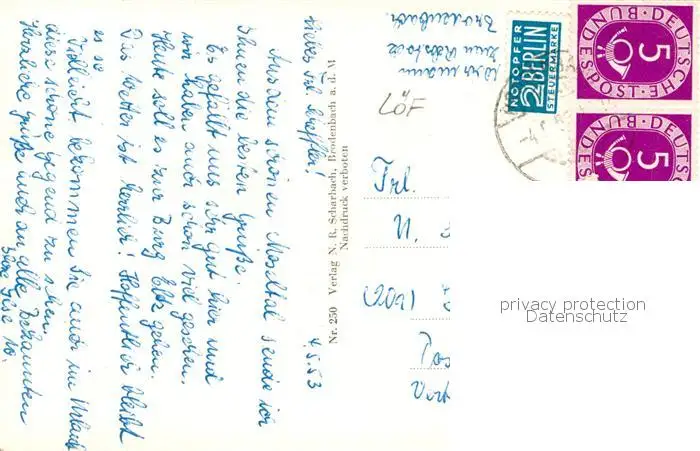 4.5.53
Liebes Frl.
Aus dem schönen Moseltal sende ich
Ihnen die besten Grüße.
Es gefällt uns sehr gut hier und
wir haben auch schon viel gesehen.
Heute soll es zur Burg Eltz gehen.
Das Wetter ist herrlich! Hoffentlich bleibt
es so
Vielleicht bekommen Sie auch im Urlaub
diese schöne Gegend zu sehen.
Herzliche Grüße auch an alle Bekannten
Nr. 250 Verlag N. R. Scharbach, Brodenbach a. d. M
Nachdruck verboten
Brodenbach
LÖF
NOTOPFER
2 BERLIN
STEUERMARKE
DEUTSCHE BUNDESPOST
5
DEUTSCHE BUNDESPOST
5
Frl.
privacy protection
Datenschutz